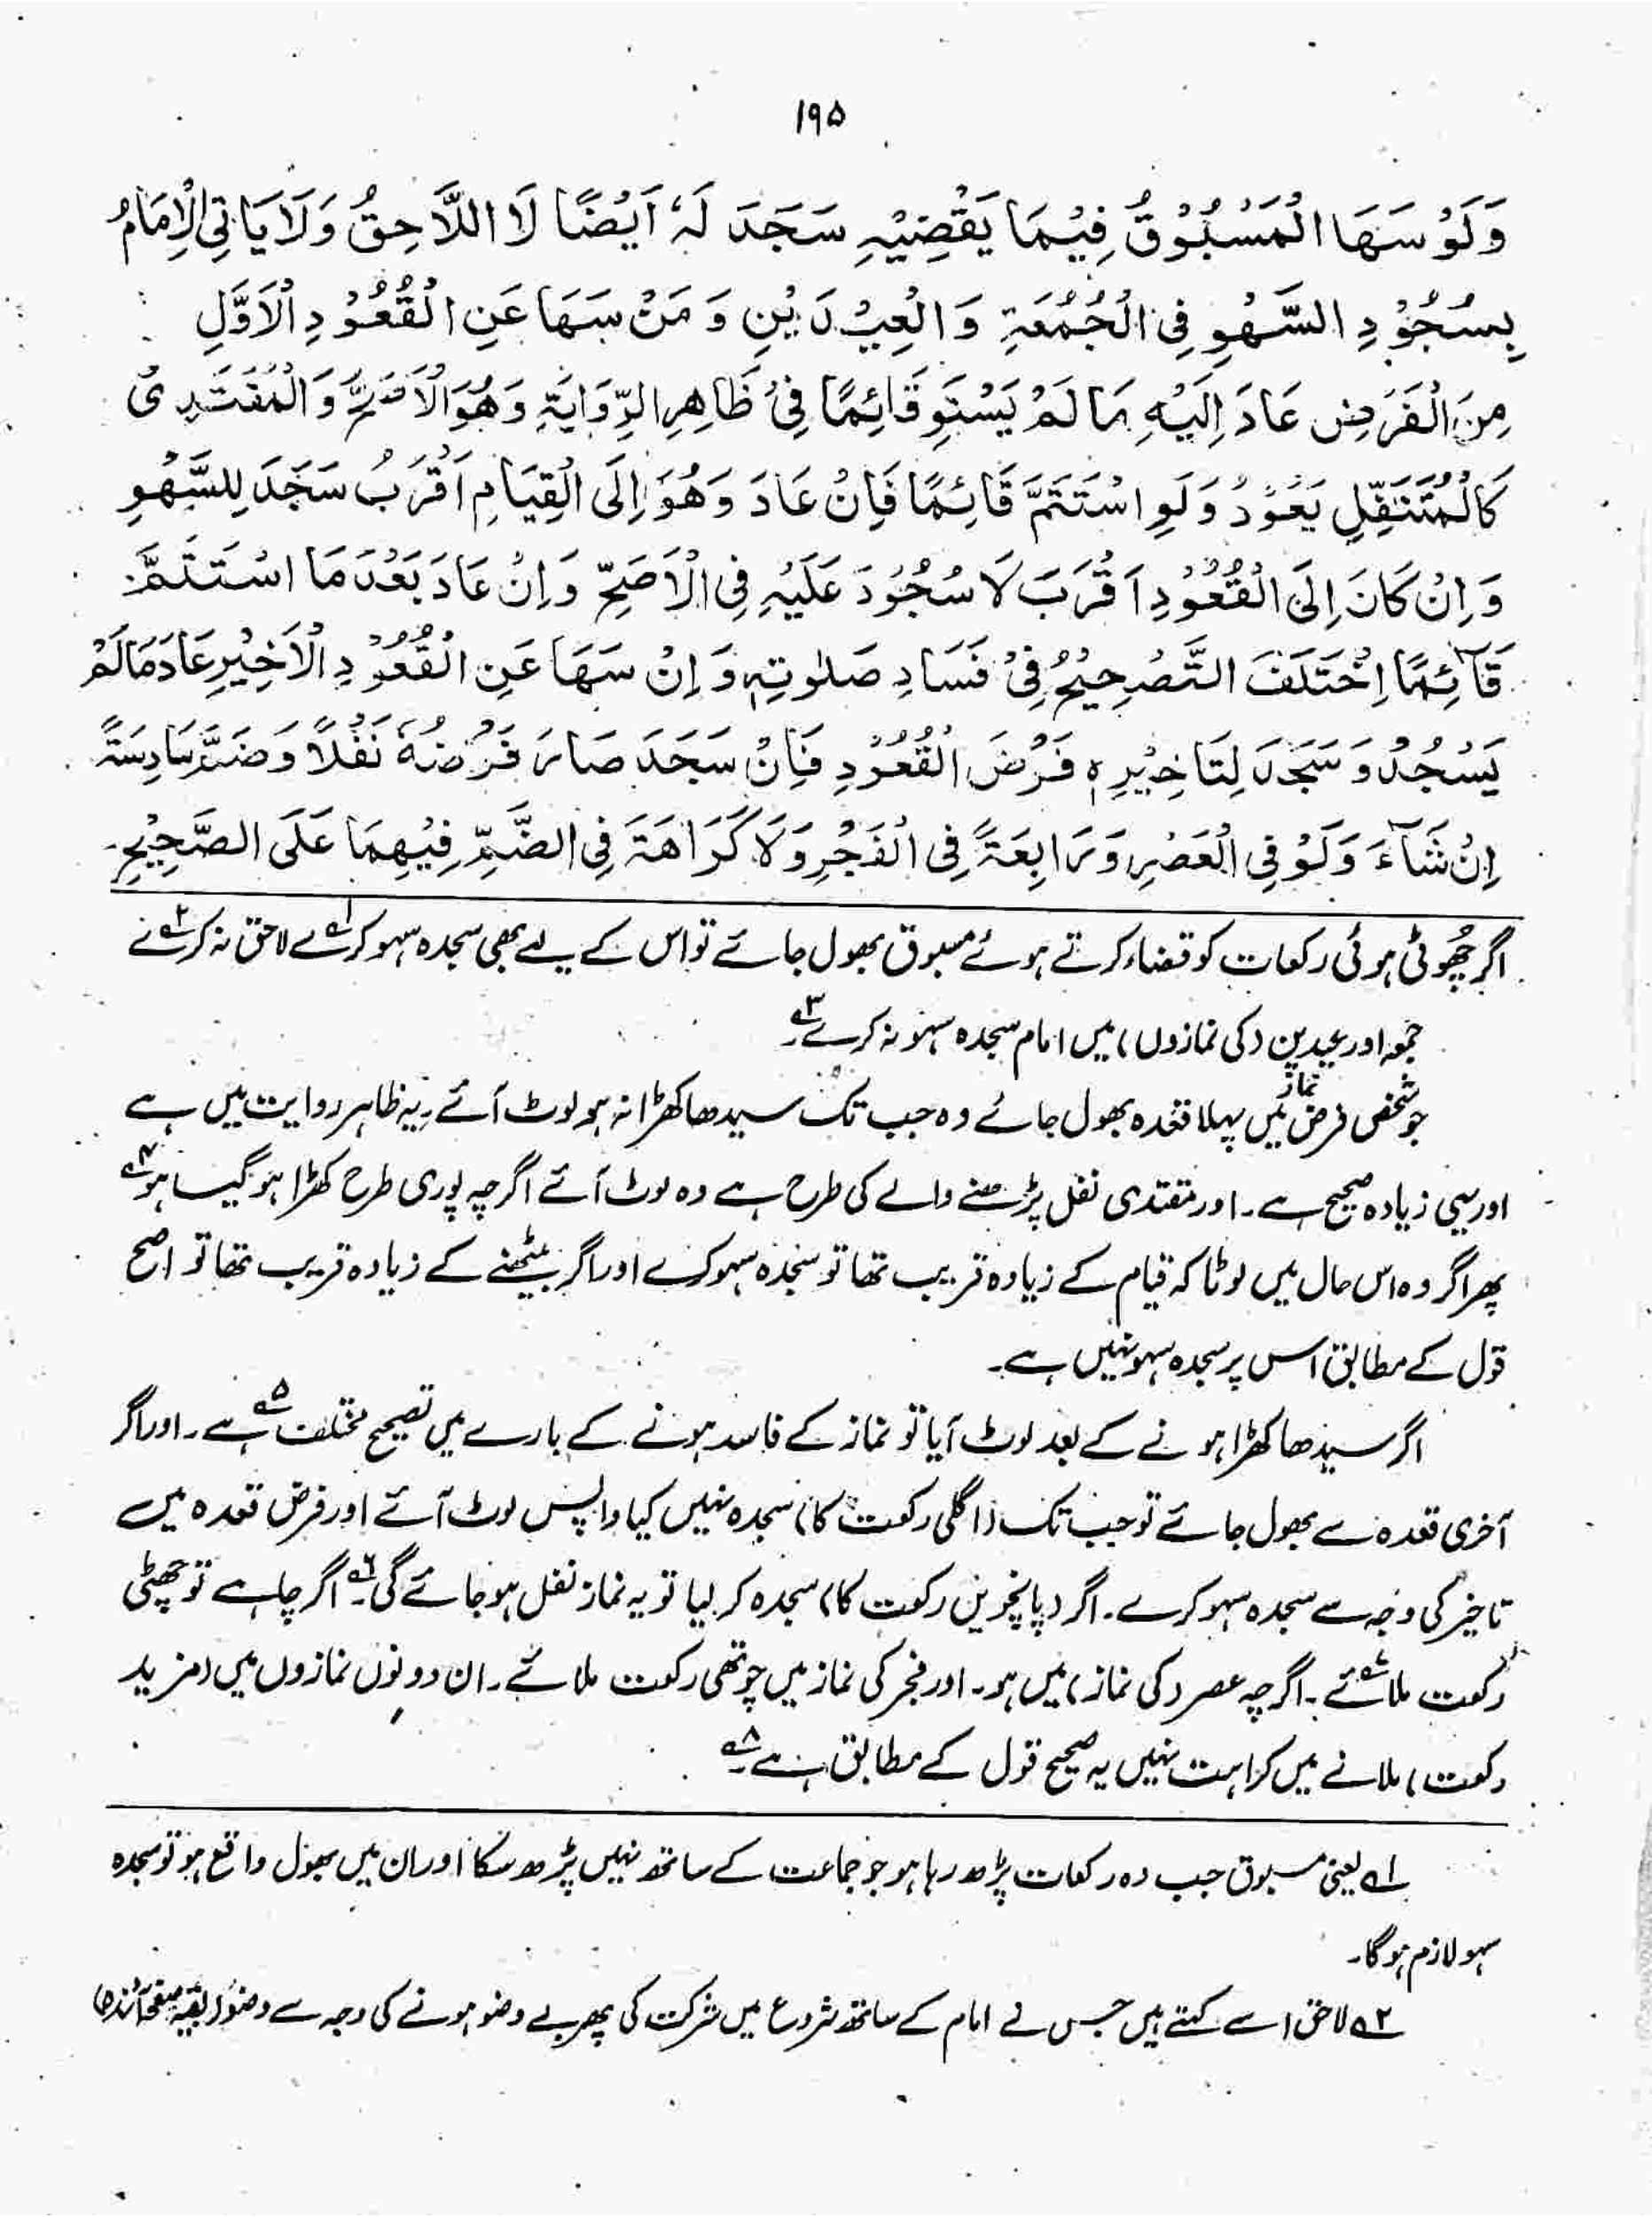 ۱۹۵
وَلَوْ سَهَا الْمَسْبُوْقُ فِيْمَا يَقْضِيْهِ سَجَدَ لَهٗ اَيْضًا لَا اللَّاحِقُ وَلَا يَاتِي الْاِمَامُ
بِسُجُوْدِ السَّهْوِ فِي الْجُمُعَةِ وَالْعِيْدَيْنِ وَمَنْ سَهَا عَنِ الْقُعُوْدِ الْاَوَّلِ
مِنَ الْفَرْضِ عَادَ اِلَيْهِ مَا لَمْ يَسْتَوِ قَائِمًا فِيْ ظَاهِرِ الرِّوَايَةِ وَهُوَ الْاَصَحُّ وَالْمُقْتَدِىْ
كَالْمُتَنَفِّلِ يَعُوْدُ وَلَوِ اسْتَتَمَّ قَائِمًا فَاِنْ عَادَ وَهُوَ اِلَى الْقِيَامِ اَقْرَبُ سَجَدَ لِلسَّهْوِ
وَاِنْ كَانَ اِلَى الْقُعُوْدِ اَقْرَبَ لَا سُجُوْدَ عَلَيْهِ فِي الْاَصَحِّ وَاِنْ عَادَ بَعْدَ مَا اسْتَتَمَّ
قَآئِمًا اِخْتَلَفَ التَّصْحِيْحُ فِيْ فَسَادِ صَلٰوتِهٖ وَاِنْ سَهَا عَنِ الْقُعُوْدِ الْاَخِيْرِ عَادَ مَا لَمْ
يَسْجُدْ وَسَجَدَ لِتَاخِيْرِهٖ فَرْضَ الْقُعُوْدِ فَاِنْ سَجَدَ صَارَ فَرْضُهٗ نَفْلًا وَضَمَّ سَادِسَةً
اِنْ شَآءَ وَلَوْ فِي الْعَصْرِ وَرَابِعَةً فِي الْفَجْرِ وَلَا كَرَاهَةَ فِي الضَّمِّ فِيْهِمَا عَلَى الصَّحِيْحِ۔
اگر چُھوٹی ہوئی رکعات کو قضاء کرتے ہوئے مسبوق بھول جائے تو اس کے لیے بھی سجدہ سہو کرے۱؎ لاحق نہ کرے۲؎
جمعہ اور عیدین (کی نمازوں) میں امام سجدہ سہو نہ کرے۳؎۔
جو شخص فرض نماز میں پہلا قعدہ بھول جائے وہ جب تک سیدھا کھڑا نہ ہو لوٹ آئے۔ یہ ظاہر روایت میں ہے
اور یہی زیادہ صحیح ہے۔ اور مقتدی نفل پڑھنے والے کی طرح ہے وہ لوٹ آئے اگرچہ پوری طرح کھڑا ہو گیا ہو۴؎
پھر اگر وہ اس حال میں لوٹا کہ قیام کے زیادہ قریب تھا تو سجدہ سہو کرے اور اگر بیٹھنے کے زیادہ قریب تھا تو اصح
قول کے مطابق اس پر سجدہ سہو نہیں ہے۔
اگر سیدھا کھڑا ہونے کے بعد لوٹ آیا تو نماز کے فاسد ہونے کے بارے میں تصحیح مختلف۵؎ ہے۔ اور اگر
آخری قعدہ سے بھول جائے تو جب تک (اگلی رکعت کا) سجدہ نہیں کیا واپس لوٹ آئے اور فرض قعدہ میں
تاخیر کی وجہ سے سجدہ سہو کرے۔ اگر (پانچویں رکعت کا) سجدہ کر لیا تو یہ نماز نفل ہو جائے گی۶؎۔ اگر چاہے تو چھٹی
رکعت ملائے۷؎۔ اگرچہ عصر (کی نماز) میں ہو۔ اور فجر کی نماز میں چوتھی رکعت ملائے۔ ان دونوں نمازوں میں (مزید
رکعت) ملانے میں کراہت نہیں یہ صحیح قول کے مطابق ہے۸؎۔
۱؎ یعنی مسبوق جب وہ رکعات پڑھ رہا ہو جو جماعت کے ساتھ نہیں پڑھ سکا اور ان میں بھول واقع ہو تو سجدہ
سہو لازم ہوگا۔
۲؎ لاحق اسے کہتے ہیں جس نے امام کے ساتھ شروع میں شرکت کی پھر بے وضو ہونے کی وجہ سے وضو (بقیہ صفحہ آئندہ)